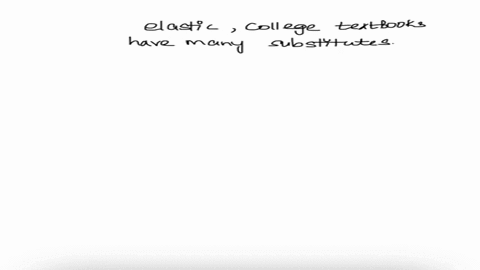 elastic, College textbooks
have many substitutes.